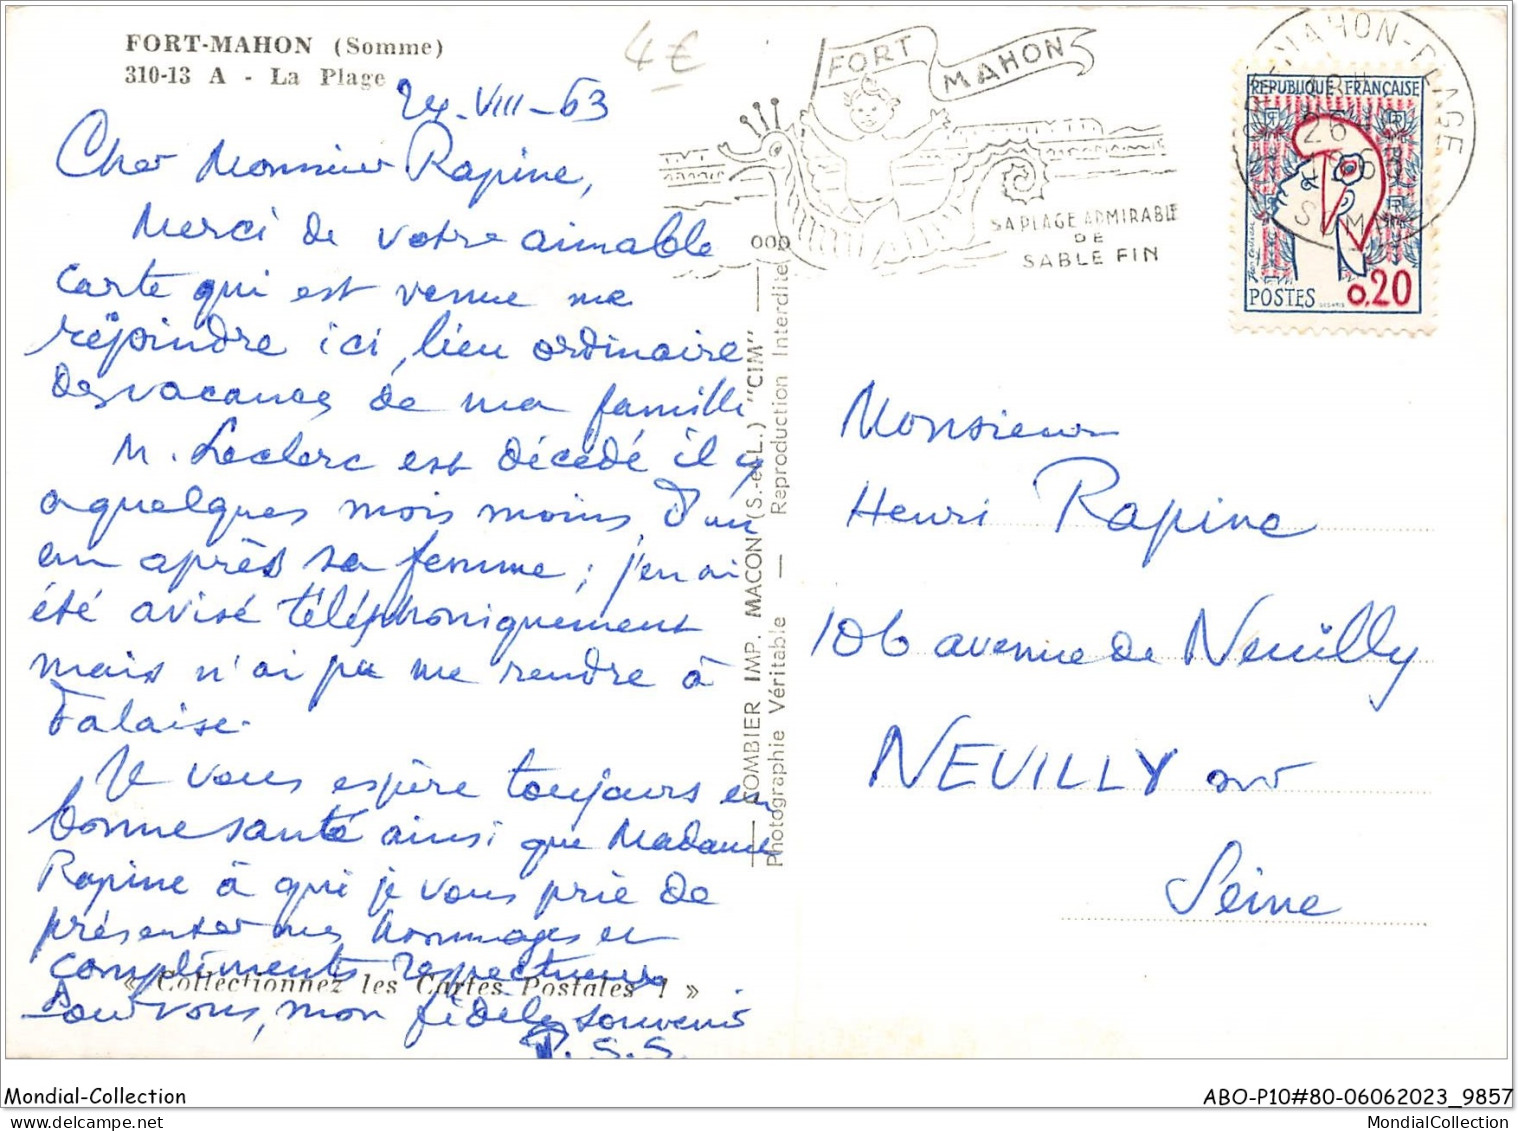 FORT-MAHON (Somme)
310-13 A - La Plage
4€
24-VIII-63
Cher Monsieur Rapine,
Merci de votre aimable
carte qui est venue me
rejoindre ici, lieu ordinaire
des vacances de ma famille
M. Leclerc est décédé il y
a quelques mois moins d'un
an après sa femme ; j'en ai
été avisé téléphoniquement
mais n'ai pu me rendre à
Falaise.
Je vous espère toujours en
bonne santé ainsi que Madame
Rapine à qui je vous prie de
présenter mes hommages et
compliments respectueux
« Collectionnez les Cartes Postales ! »
Pour vous, mon fidèle souvenir
COMBIER IMP. MACON (S.-et-L.) "CIM"
Photographie Véritable — Reproduction Interdite
000
FORT MAHON
SA PLAGE ADMIRABLE
DE
SABLE FIN
MAHON-PLAGE
26
SOMME
REPUBLIQUE FRANÇAISE
RF
POSTES
0,20
Monsieur
Henri Rapine
106 avenue de Neuilly
NEUILLY sur
Seine
Mondial-Collection
ABO-P10#80-06062023_9857
MondialCollection